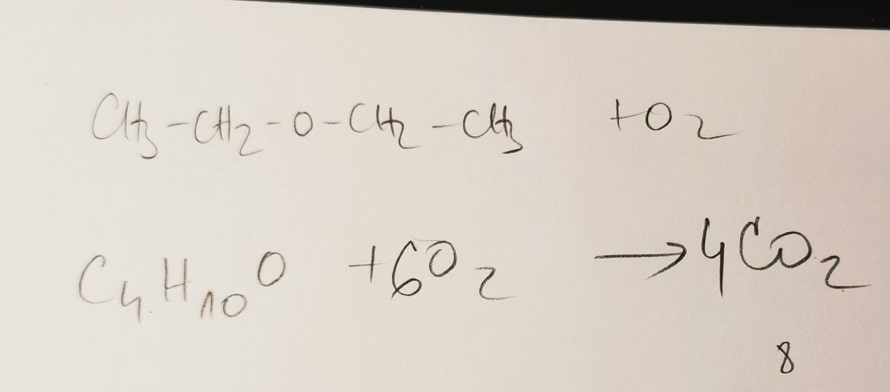 CH₃-CH₂-O-CH₂-CH₃ +O₂
C₄H₁₀O +6O₂ →4CO₂
8